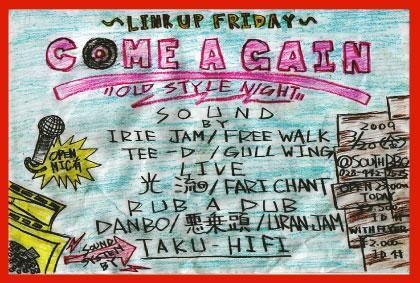 ~LINK UP FRIDAY~
COME A GAIN
"OLD STYLE NIGHT"
SOUND
BY
IRIE JAM/FREE WALK
TEE D/GULL WING
LIVE
光 流/FARI CHANT
RUB A DUB
DANBO/悪乗頭/URAN JAM
TAKU-HIFI
OPEN
MICH
SOUND
SYSTEM
BY
2009
OPEN
TODAY
1D付
WITH FLYER
¥2.000
1D付